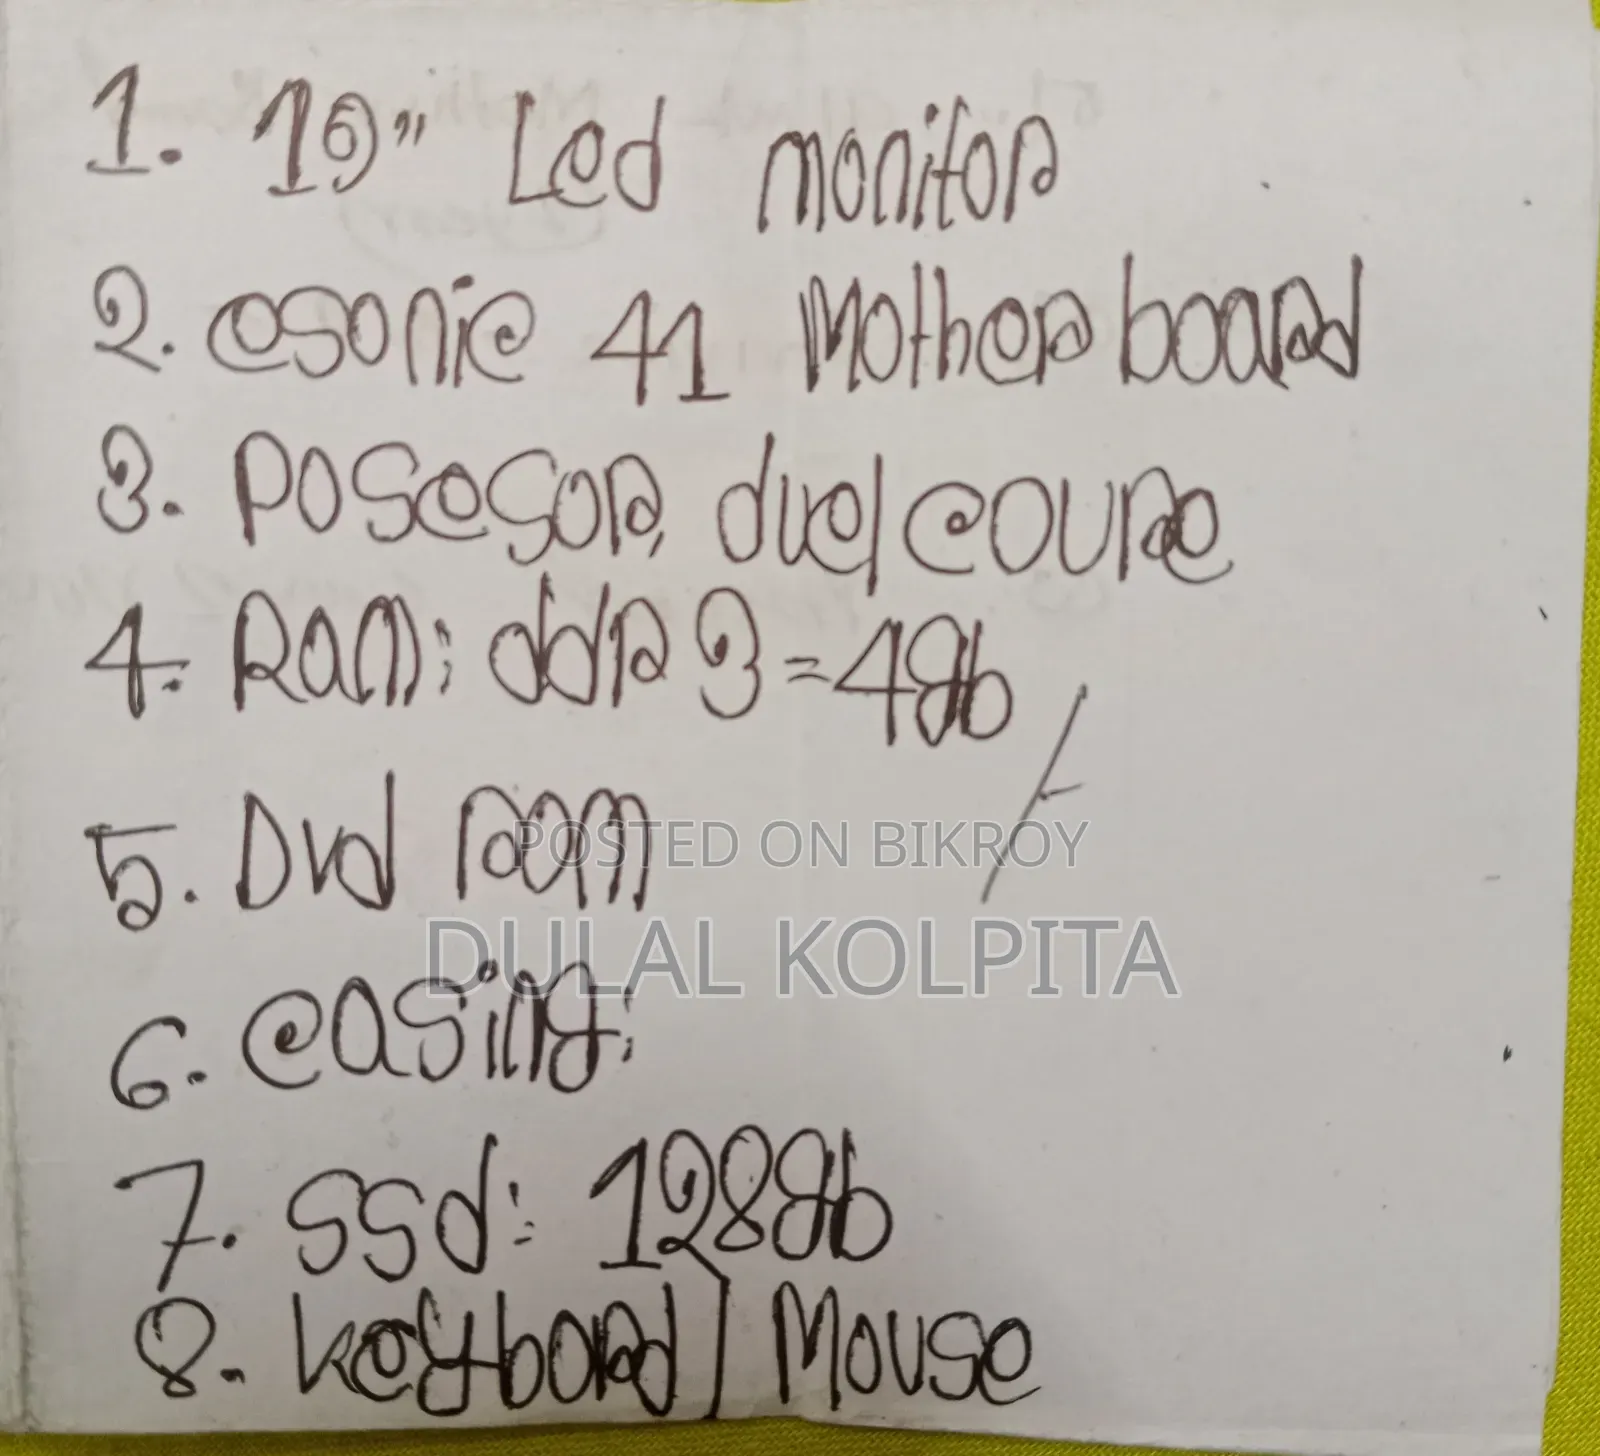 1. 19" Led monitor
2. esonic 41 Motherboard
3. Posesor, duel coure
4. Ram: ddr 3 = 4gb
5. Dvd ram
POSTED ON BIKROY
DULAL KOLPITA
6. casing:
7. SSd: 128gb
8. keybord / Mouse